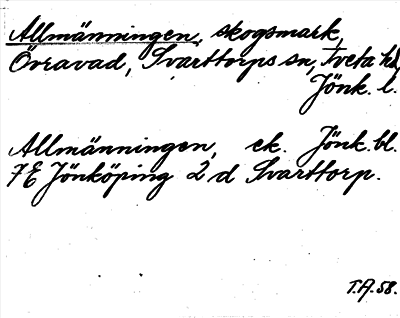 Allmänningen, skogsmark,
Öravad, Svarttorps sn, Tveta hd,
Jönk. l.
Allmänningen, ek. Jönk. bl.
7E Jönköping 2 d Svarttorp.
T.A.58.